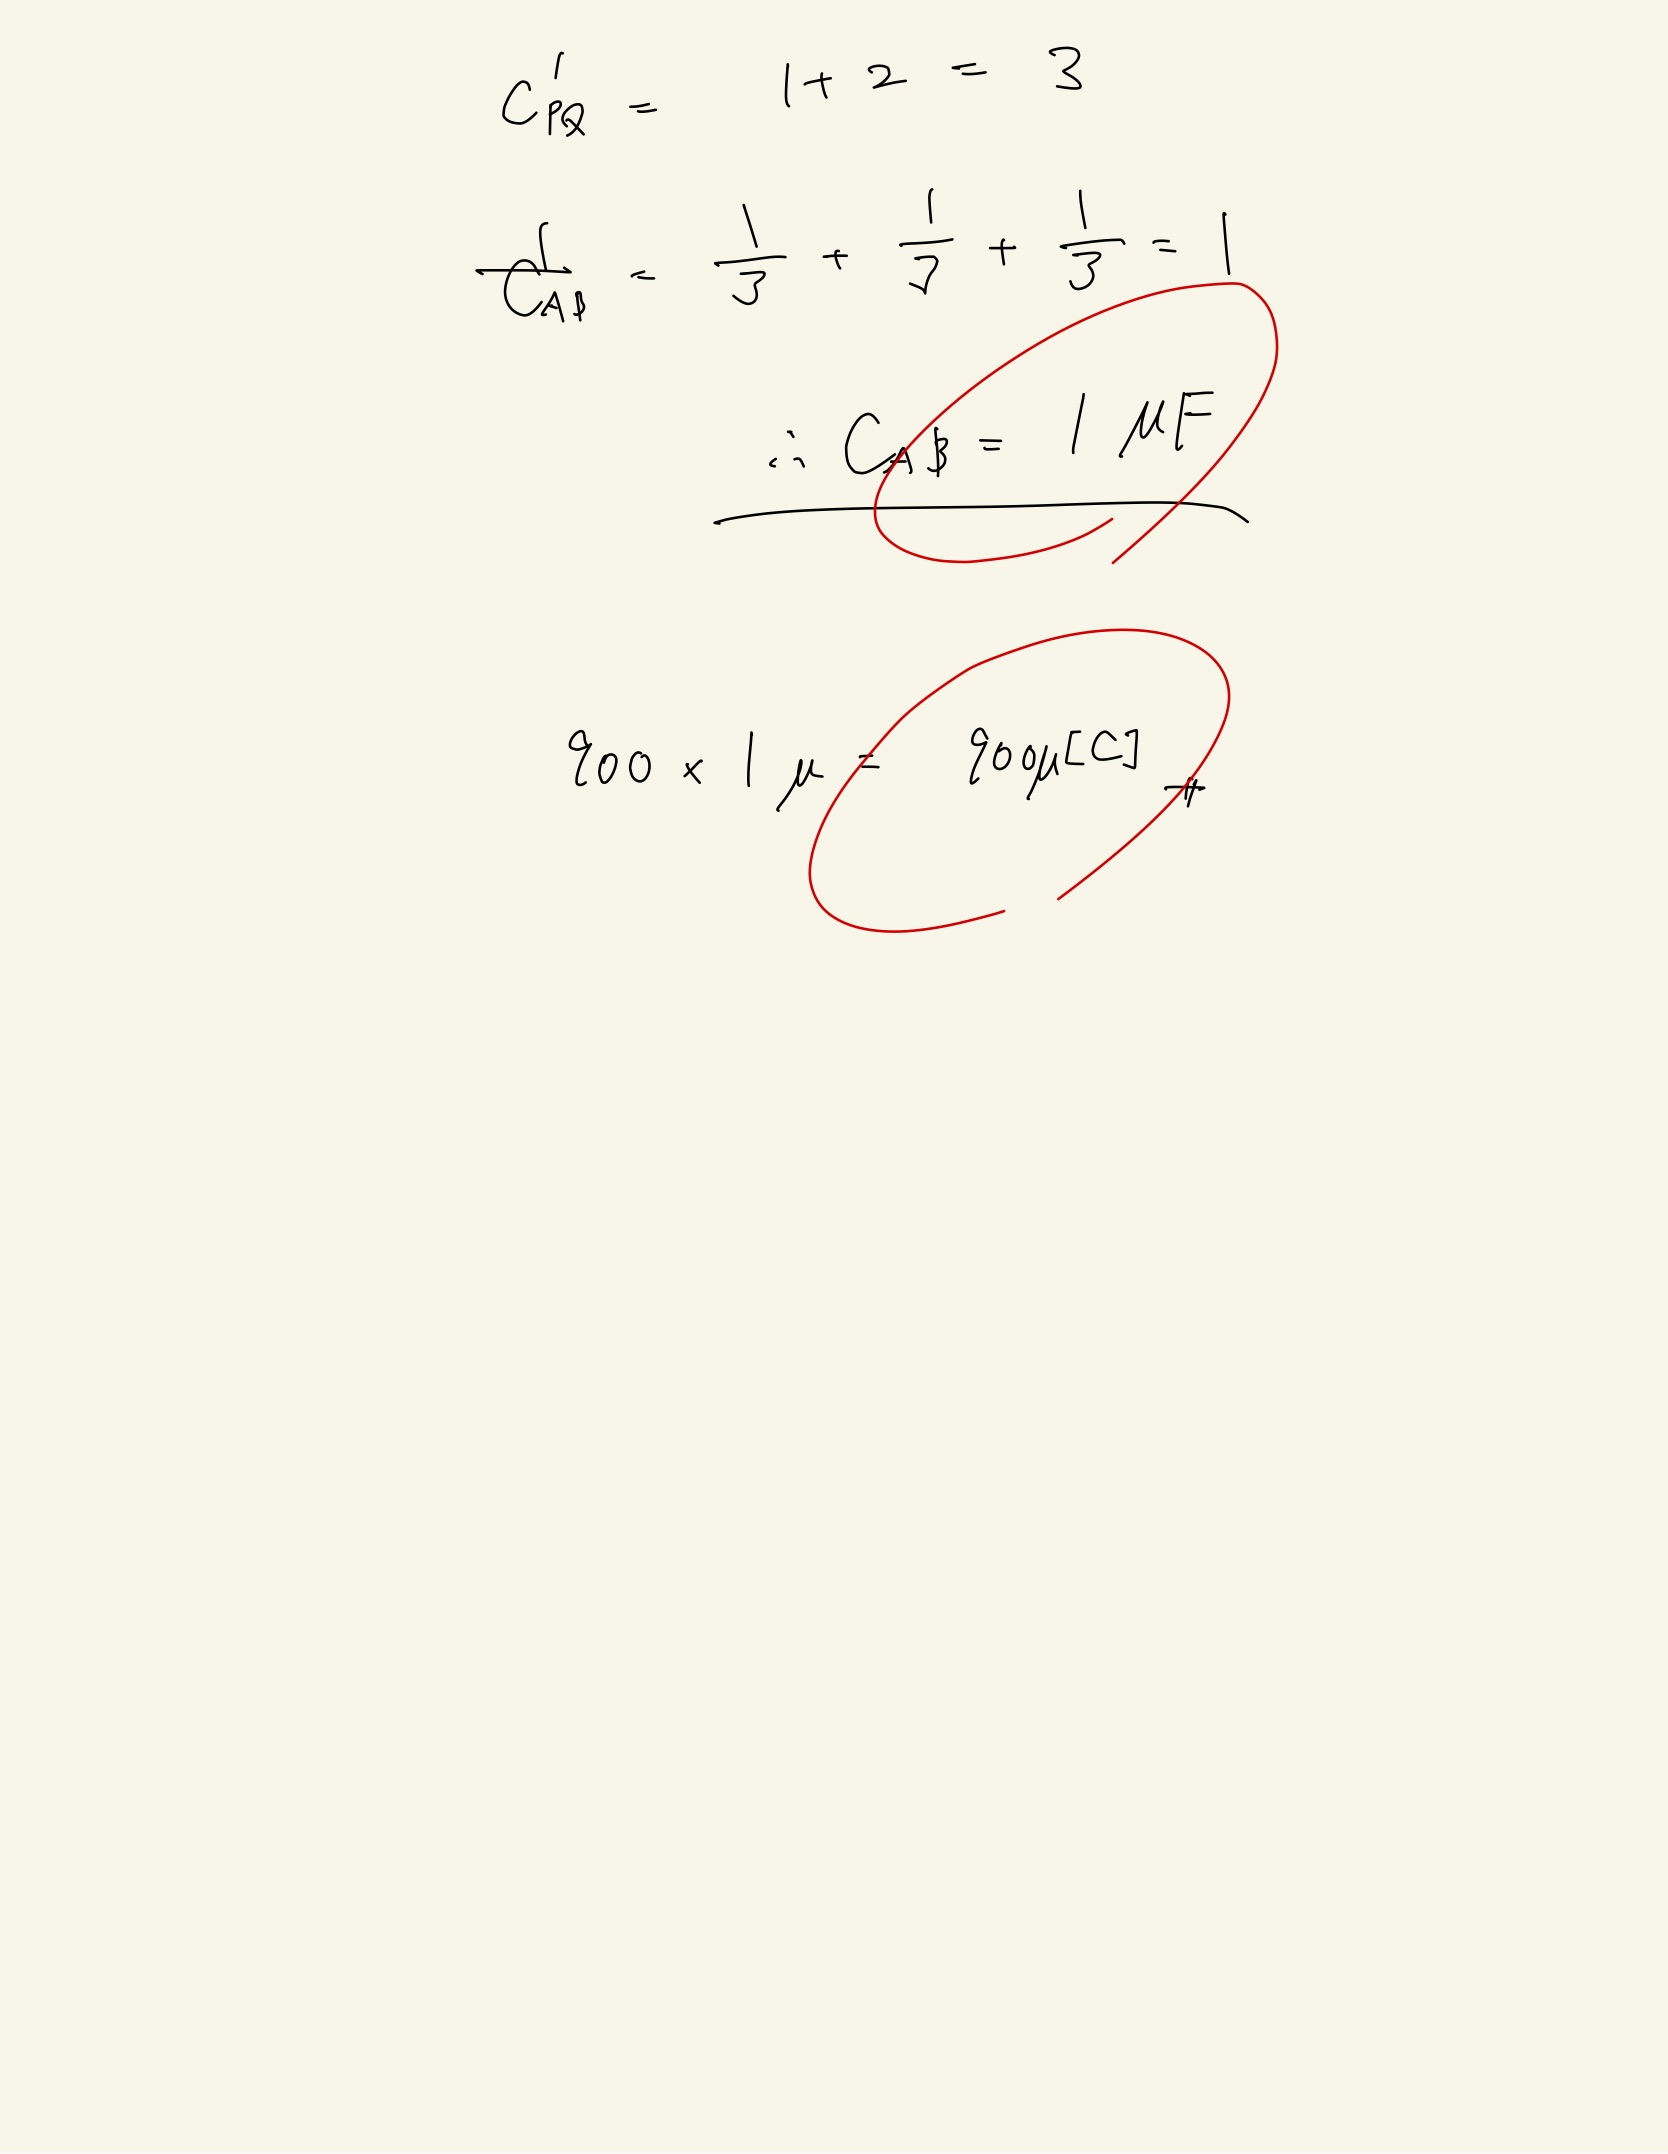 C'PQ = 1 + 2 = 3
1/CAB = 1/3 + 1/3 + 1/3 = 1
∴ CAB = 1 μF
900 × 1 μ = 900μ[C]